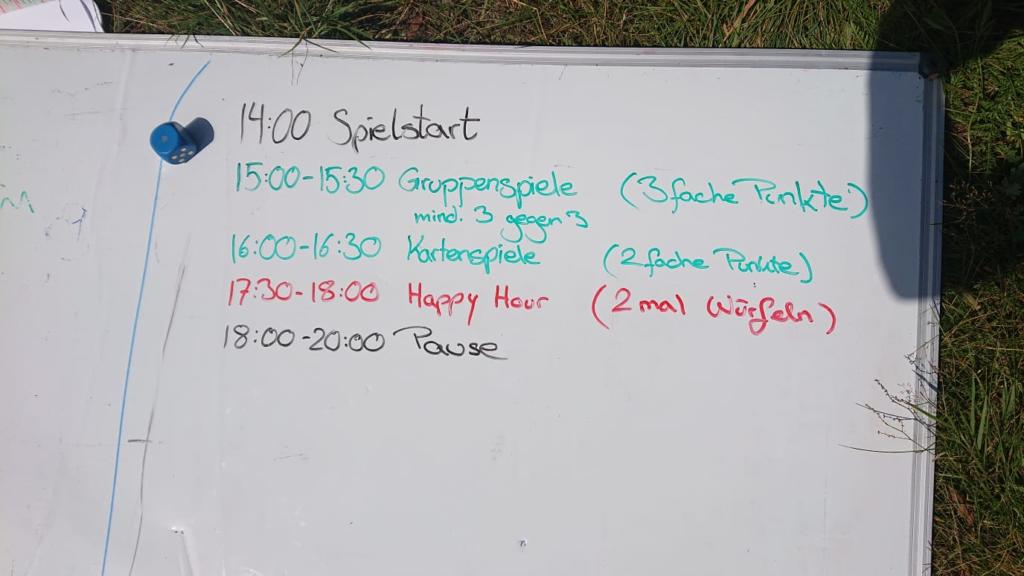 14:00 Spielstart
15:00-15:30 Gruppenspiele (3fache Punkte)
mind. 3 gegen 3
16:00-16:30 Kartenspiele (2fache Punkte)
17:30-18:00 Happy Hour (2 mal Würfeln)
18:00-20:00 Pause